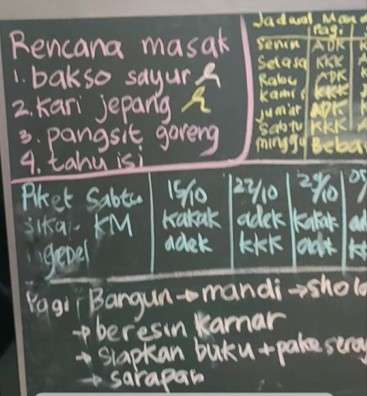 Rencana masak
1. bakso sayur
2. kari jepang
3. pangsit goreng
4. tahu isi
Jadwal Mand
Pagi
Senin ADK
Selasa KKK
Rabu ADK
Kamis KKK
Jum'at ADK
Sabtu KKK
minggu Beba
Piket Sabtu 15/10 22/10 29/10
sikat KM kakak adek kakak
ngepel adek KKK adk
Pagi: Bangun → mandi → shola
→ beresin kamar
→ siapkan buku + pake serag
→ sarapan